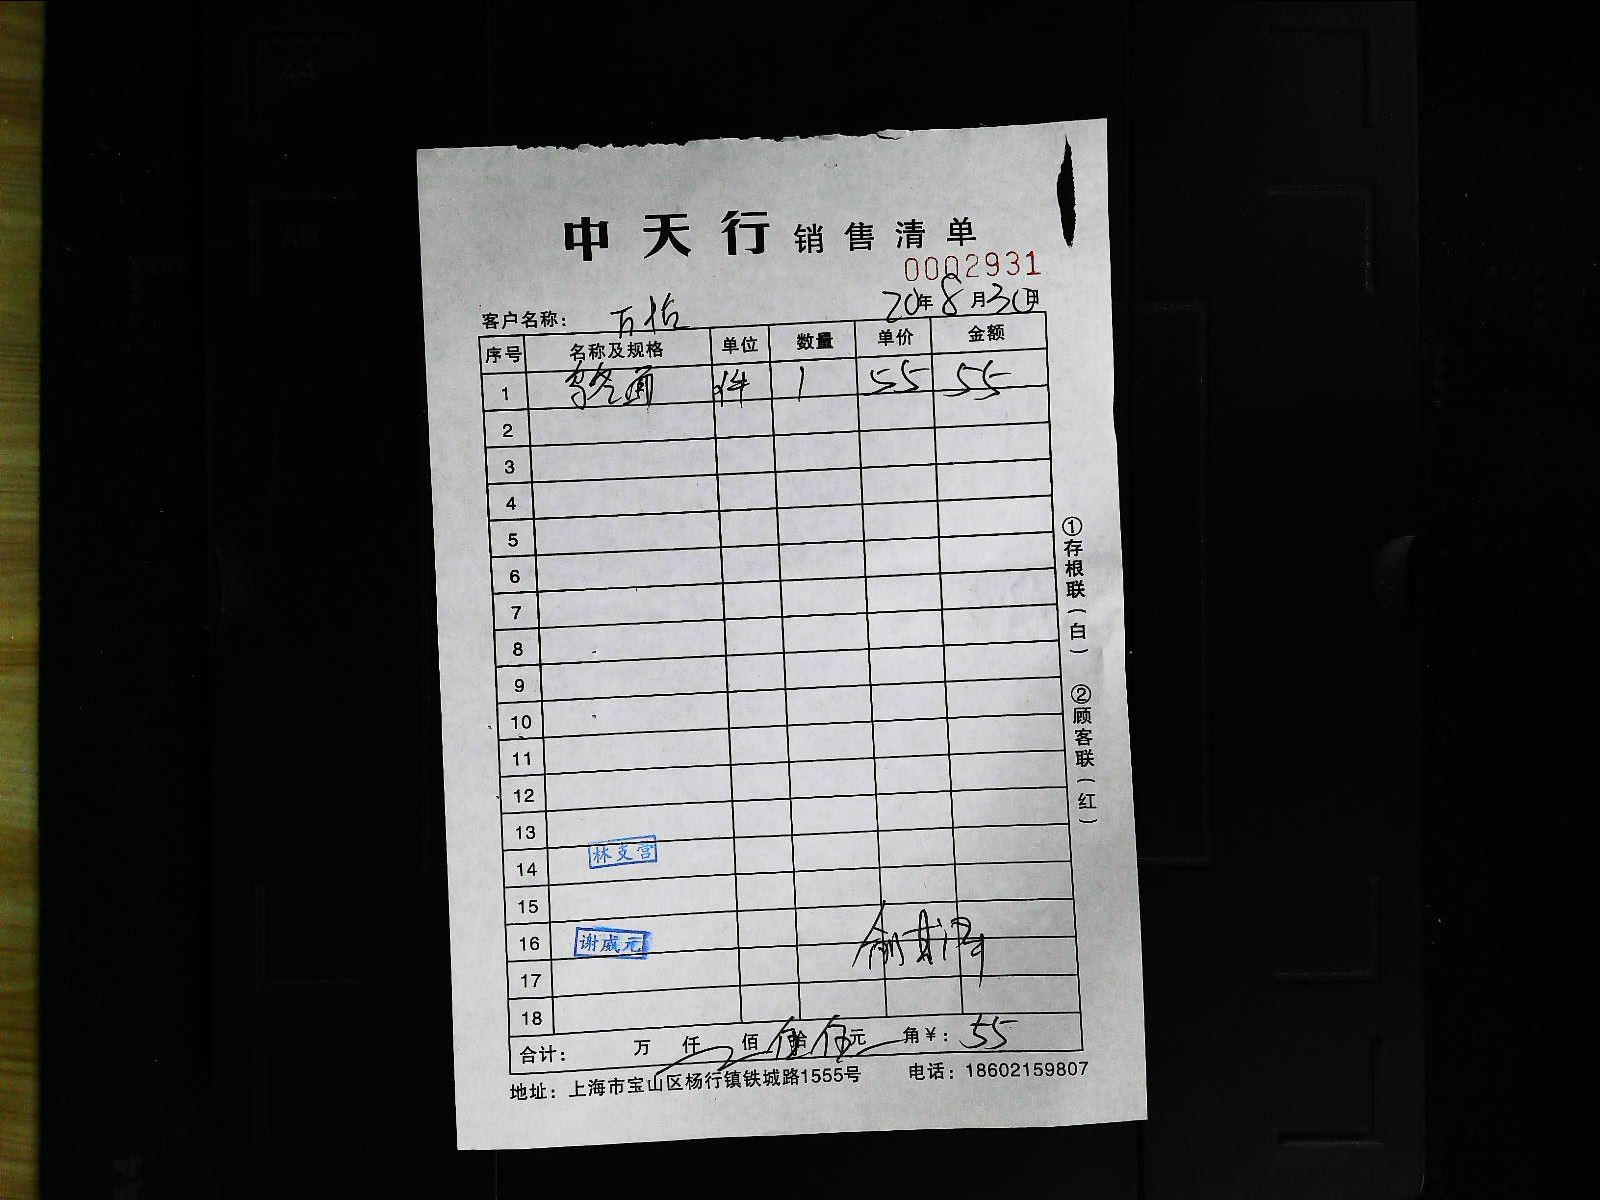 中天行销售清单
0002931
客户名称： 20年8月30日
序号 名称及规格 单位 数量 单价 金额
1 件 1 55 55
2
3
4
5
6
7
8
9
10
11
12
13
14
15
16
17
18
林支营
谢威元
合计： 万 仟 佰 伍拾伍元 角¥：55
地址：上海市宝山区杨行镇铁城路1555号 电话：18602159807
①存根联（白）
②顾客联（红）
A4
A5